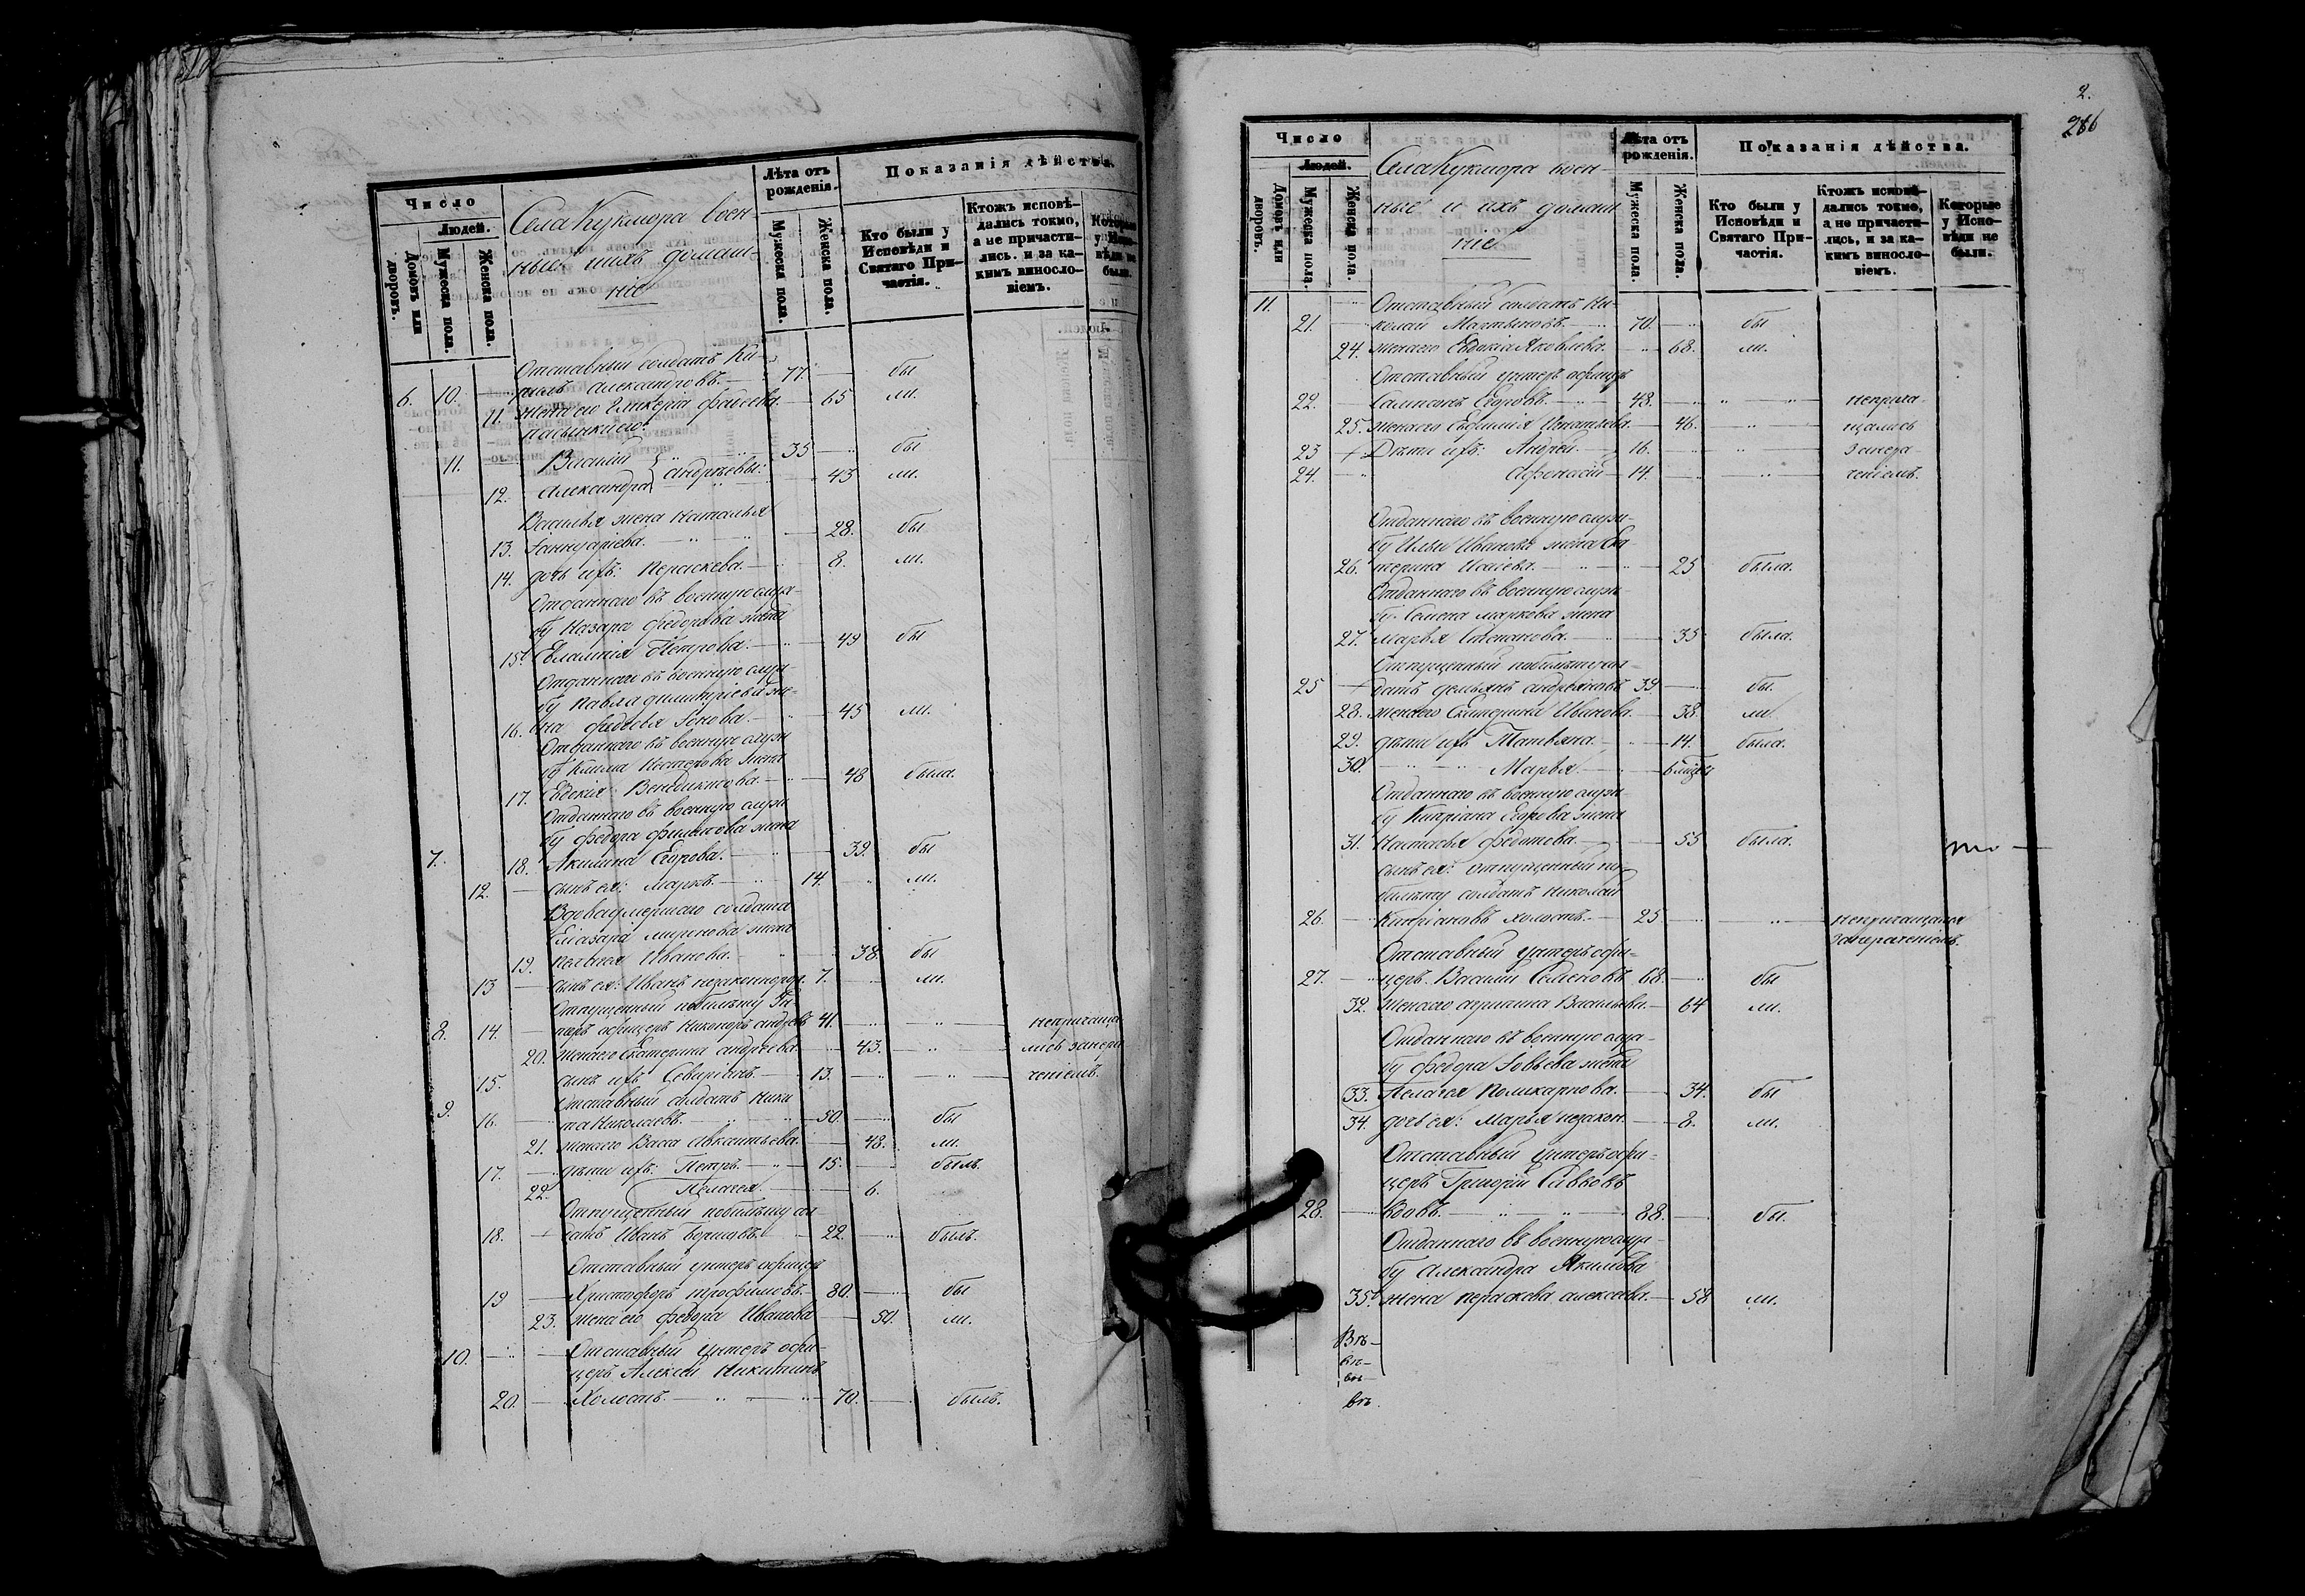 Число
Людей.
Домовъ или дворовъ.
Мужеска пола.
Женска пола.
Села Кукмора воен-
ные и ихъ домаш-
ніе
Лѣта отъ рожденія.
Мужеска пола.
Женска пола.
Показанія дѣйства.
Кто были у Исповѣди и Святаго При-
частія.
Ктожъ исповѣ-
дались токмо,
а не причасти-
лись. и за ка-
кимъ винослo-
віемъ.
Которые у Испо-
вѣди не были.
Отставный солдатъ Ки-
6. 10. рилъ Александровъ. 77. бы
11. жена его Гликерія Фадеева. 65 ли.
пасынки его:
11. Василій 35 бы
12. Александра Андреевы: 43 ли.
Василья жена Наталья
13. Іаннуаріева. 28. бы
14. дочь ихъ: Параскева. 8. ли.
Отданнаго въ военную служ-
бу Назара Федорова жена
15. Евлампія Петрова. 49 бы
Отданнаго въ военную служ-
бу Павла Димитріева же-
16. на Федосья Іонова. 45 ли.
Отданнаго въ военную служ
бу Клима Нестерова жена
17. Евдокія Венедиктова. 48 была.
Отданнаго въ военную служ
бу Федора Филипова жена
7. 18. Акилина Егорова. 39. бы
12. сынъ ея: Маркъ. 14. ли.
Вдова умершаго солдата
Еліазара Миронова жена
19. Пелагея Иванова. 38. бы
13 сынъ ея: Иванъ незаконнорож. 7. ли.
Отпущенный по билету Ун
8. 14. теръ офицеръ Никоноръ Андреевъ 41. непричаща
20. жена его Екатерина Андреева. 43. лись за нера
15. сынъ ихъ Северіанъ. 13. ченіемъ.
Отставный солдатъ Ники
9. 16. та Николаевъ. 50. бы
21. жена его Васса Авксентьева. 48. ли.
17. дѣти ихъ: Петръ. 15. былъ.
22. Пелагея. 6.
Отпущенный по билету сол
18. датъ Иванъ Борисовъ. 22. былъ.
Отставный унтеръ офицеръ
19 Христофоръ Трофимовъ. 80. бы
23. жена его Федора Иванова 50. ли.
10. Отставный унтеръ офи-
церъ Алексѣй Никитинъ
20. Холостъ. 70. былъ.
2.
286
Число
Людей.
Домовъ или дворовъ.
Мужеска пола.
Женска пола.
Села Кукмора воен-
ные и ихъ домаш
ніе
Лѣта отъ рожденія.
Мужеска пола.
Женска пола.
Показанія дѣйства.
Кто были у Исповѣди и Святаго При-
частія.
Ктожъ исповѣ-
дались токмо,
а не причасти-
лись, и за ка-
кимъ винослo-
віемъ.
Которые у Испо-
вѣди не были.
11. Отставный солдатъ Ни-
21. колай Мартыновъ. 70. бы
24. жена его Евдокія Яковлева. 68. ли.
Отставный унтеръ офицеръ
22. Сампсонъ Егоровъ. 48. неприча
25. жена его Евфимія Игнатьева. 46. щались
23 Дѣти ихъ: Андрей. 16. За нера
24. Афанасій 14. ченіемъ.
Отданнаго въ военную служ-
бу Ильи Иванова жена Ека
26. терина Исаіева. 25 была.
Отданнаго въ военную служ-
бу Семена Маркова жена
27. Марья Степанова. 35 была.
Отпущенный по билету сол-
25 датъ Демьянъ Андреяновъ 39 бы.
28. жена его Екатерина Иванова. 38. ли
29. дѣти ихъ Татьяна. 14. была.
30. Марья.
Отданнаго въ военную служ-
бу Кипріана Егорова жена
31. Настасья Федотова. 55 была.
сынъ ея: отпущенный по
билету солдатъ Николай
26. Кипріановъ холостъ. 25 непричащался
За нераченіемъ.
Отставный унтеръ офи-
27. церъ Василій Семеновъ 68. бы
32. жена его Ирина Васильева. 64 ли.
Отданнаго въ военную служ-
бу Федора Іовлева жена
33. Пелагея Поликарпова. 34. бы
34. дочь ея: Марья незакон. 8. ли.
Отставный унтеръ офи-
церъ Григорій Савовъ
28. вдовъ. 88. бы.
Отданнаго въ военную служ-
бу Александра Акимова
35 жена Параскева Алексеева. 58 ли.